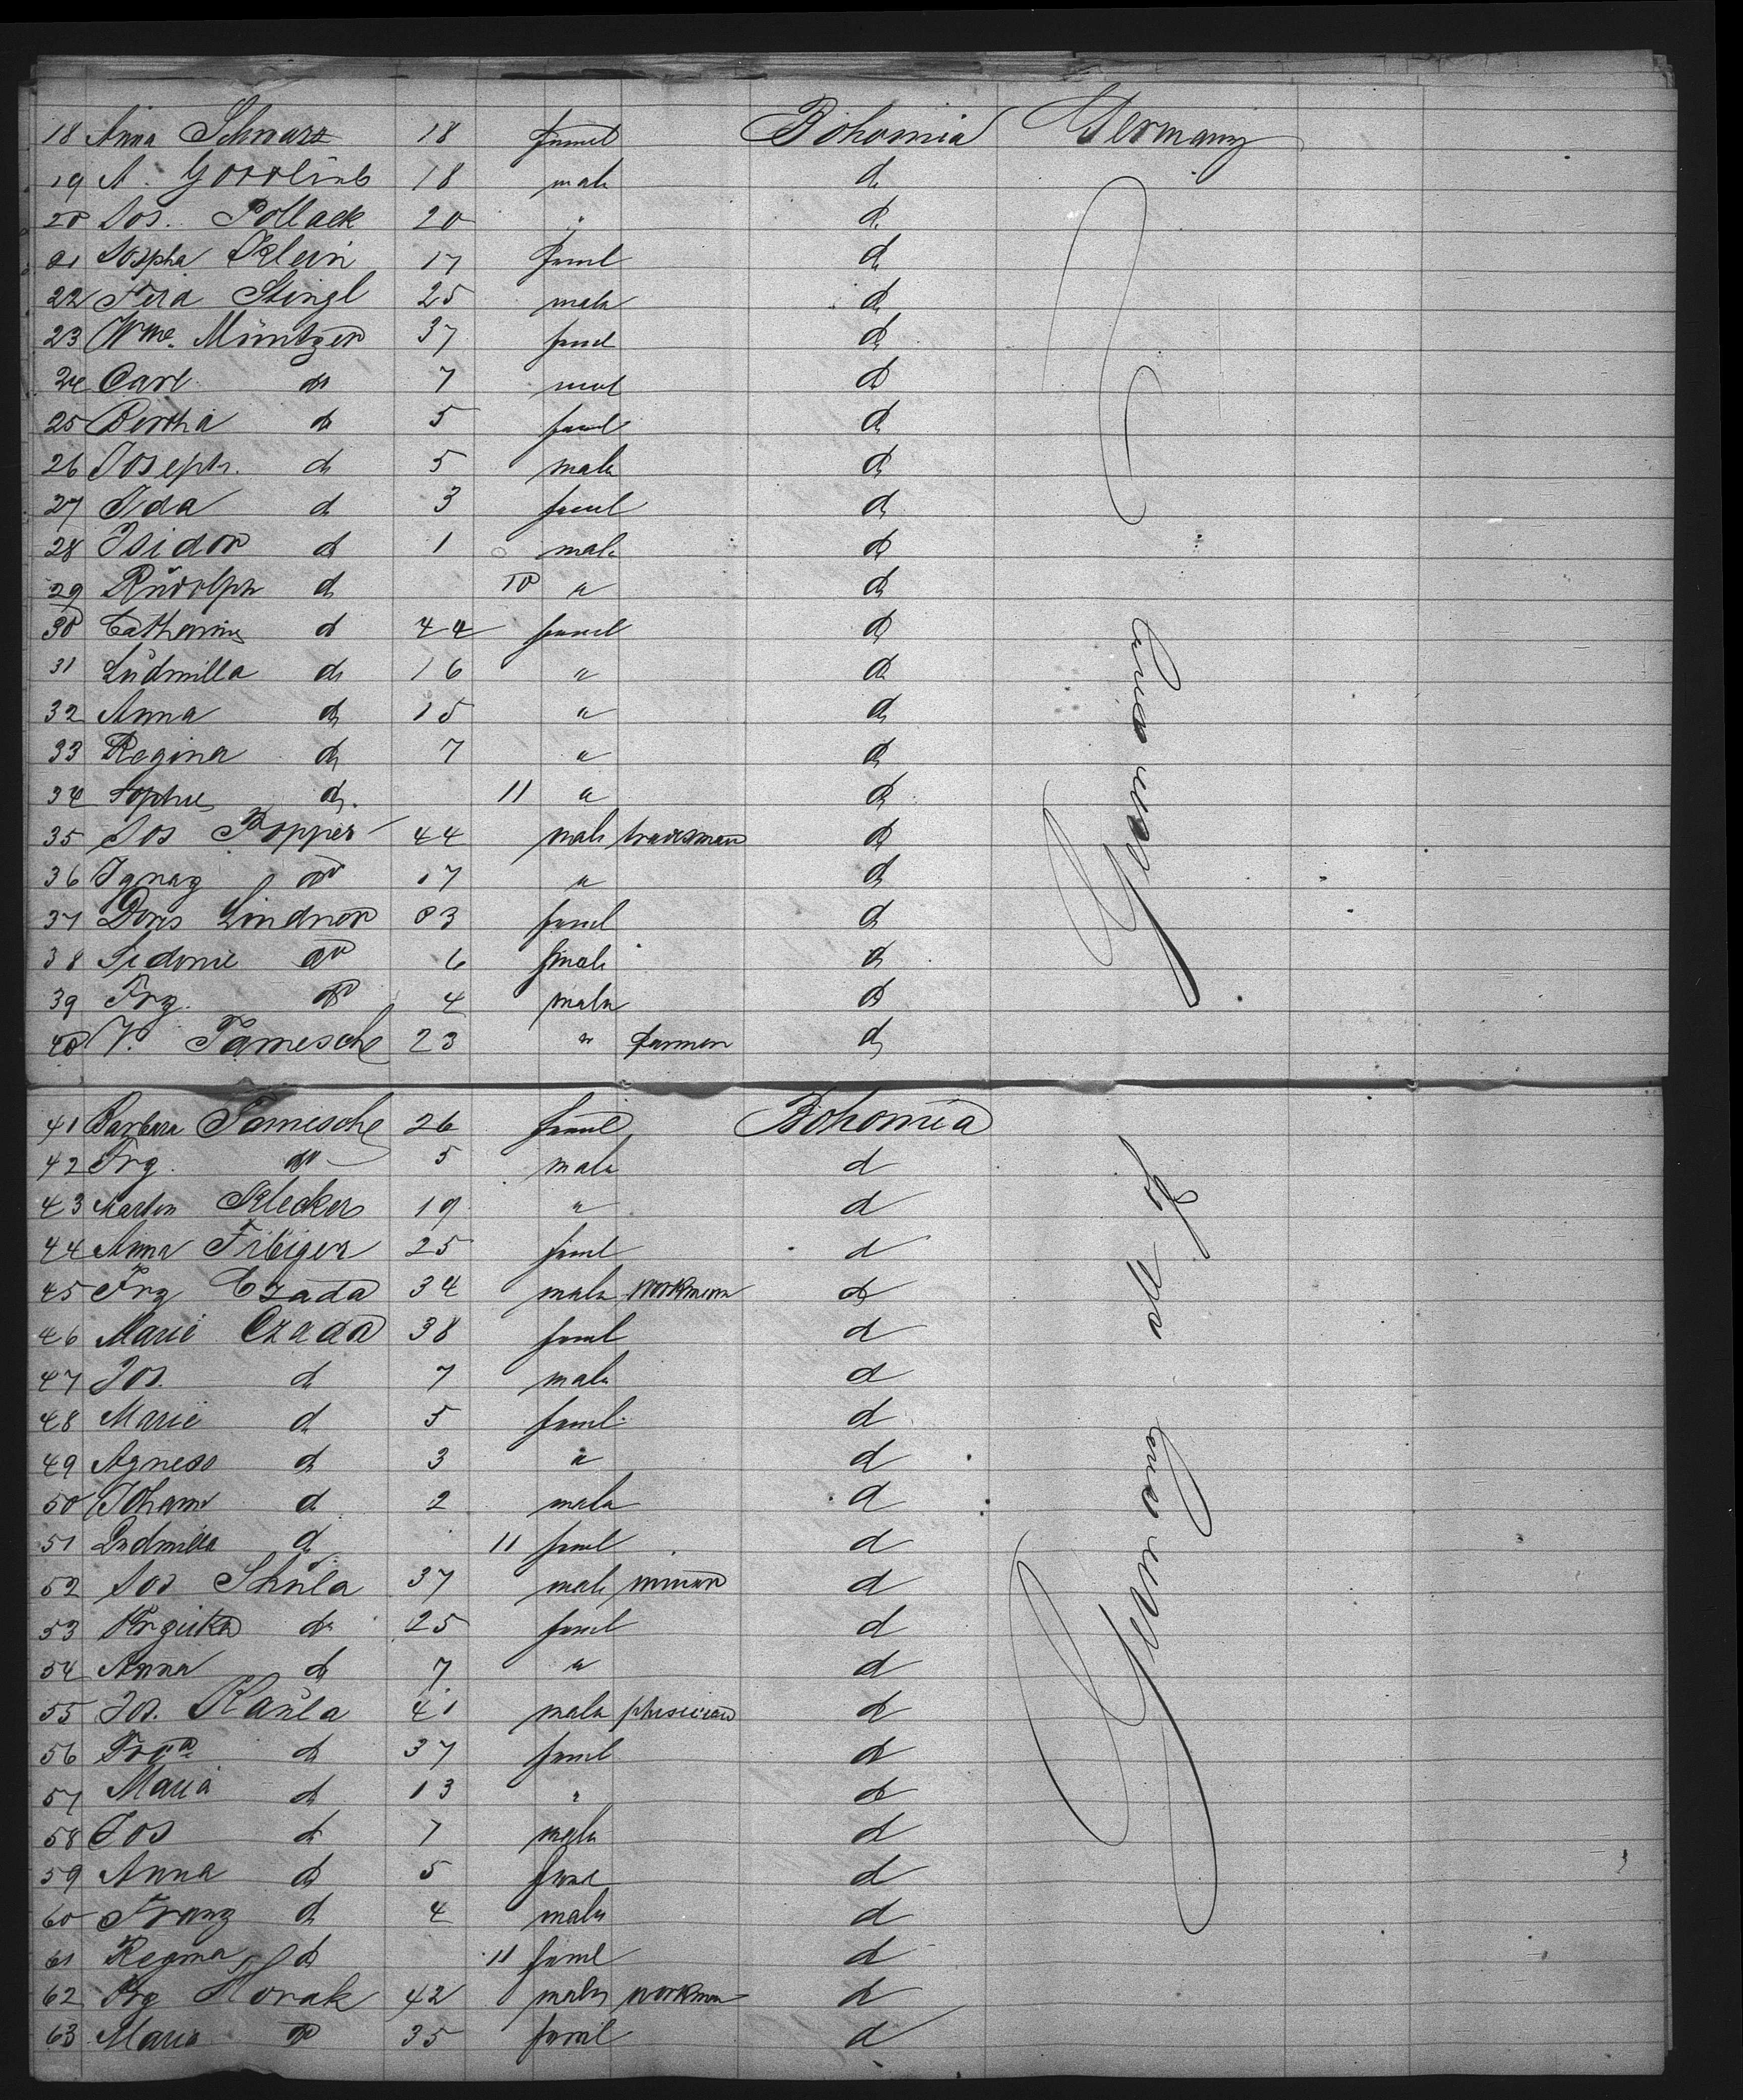 18 Anna Schwarz 18 femel Bohomia Germany
19 A. 18 male do
20 Jos. Pollack 20 " do
21 Josepha Klein 17 femel do
22 Stingl 25 male do
23 Wme. Müntzer 37 femel do
24 Carl do 7 mal do
25 Bertha do 5 femel do
26 Joseph do 5 male do
27 Ida do 3 femel do
28 Isidor do 1 male do
29 Rudolph do 10 " do
30 Catharine do 44 femel do
31 Ludmilla do 16 " do
32 Anna do 15 " do
33 Regina do 7 " do
34 Sophie do 11 " do
35 Jos Popper 44 male tradesman do
36 Ignaz do 17 " do
37 Doris Lindner 33 femel do
38 Sidonie do 6 femal do
39 Frz. do 4 male do
40 V. Tamesche 23 " farmer do
Germany
41 Barbara Tamesche 26 femel Bohomia
42 Frz. do 5 male do
43 Martin Klecker 19 " do
44 Anna Fibiger 25 femel do
45 Frz Czada 34 male workman do
46 Marie Czada 38 femel do
47 Jos. do 7 male do
48 Marie do 5 femel do
49 Agness do 3 " do
50 Johann do 2 male do
51 Ludmilla do 11 femel do
52 Jos Skula 37 male miner do
53 do 25 femel do
54 Anna do 7 " do
55 Jos. Kaula 41 male phisician do
56 Frza do 37 femel do
57 Maria do 13 " do
58 Jos do 7 male do
59 Anna do 5 femel do
60 Franz do 4 male do
61 Regina do 11 femel do
62 Frz Horak 42 male workman do
63 Maria do 35 femel do
all of Germany